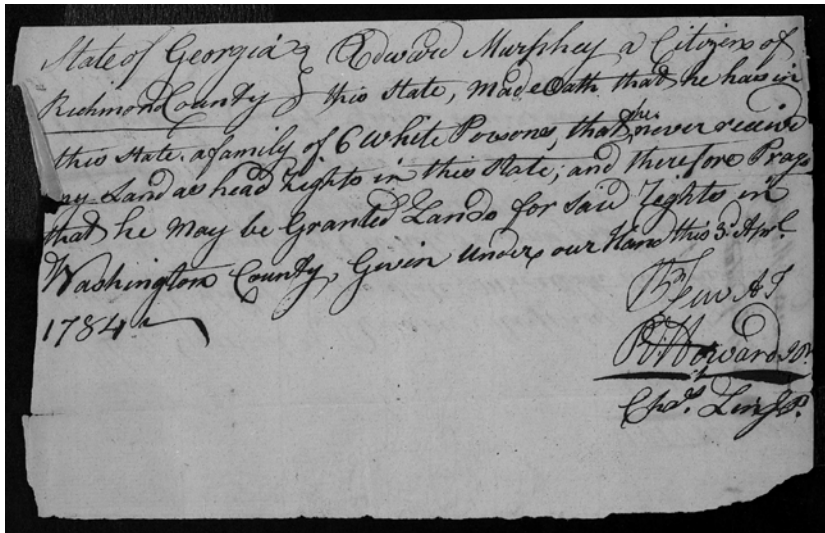 State of Georgia } Edward Murphey a Citizen of
Richmond County } this State, made Oath that he has in
this State a family of 6 White Persons, that he never receivd
any Land as head rights in this State; and therefore Prays
that he may be Granted Lands for said rights in
Washington County, Given under our Hand this 3d. Apl.
1784
Howard
Chas.